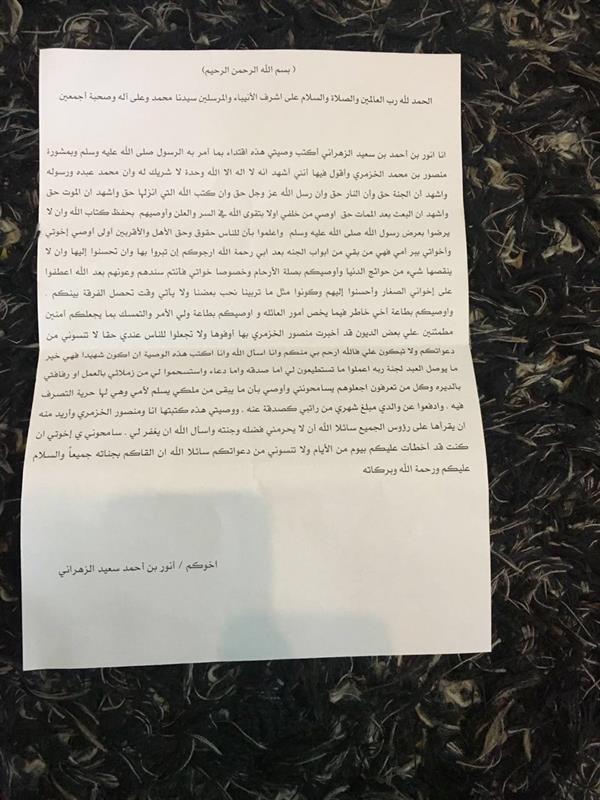 ( بسم الله الرحمن الرحيم)
الحمد لله رب العالمين والصلاة والسلام على اشرف الأنبياء والمرسلين سيدنا محمد وعلى آله وصحبة أجمعين
انا أنور بن أحمد بن سعيد الزهراني أكتب وصيتي هذه اقتداء بما أمر به الرسول صلى الله عليه وسلم وبمشورة
منصور بن محمد الخزمري وأقول فيها أنني أشهد انه لا اله الا الله وحدة لا شريك له وان محمد عبده ورسوله
واشهد أن الجنة حق وأن النار حق وان رسل الله عز وجل حق وان كتب الله التي انزلها حق واشهد ان الموت حق
وأشهد ان البعث بعد الممات حق اوصي من خلفي اولا بتقوى الله في السر والعلن وأوصيهم بحفظ كتاب الله وان لا
يرضوا بعرض رسول الله صلى الله عليه وسلم واعلموا بأن للناس حقوق وحق الأهل والأقربين اولى اوصي إخوتي
وأخواتي ببر أمي فهي من بقي من ابواب الجنه بعد ابي رحمة الله ارجوكم إن تبروا بها وان تحسنوا إليها وان لا
ينقصها شيء من حوائج الدنيا وأوصيكم بصلة الأرحام وخصوصا خواتي فأنتم سندهم وعونهم بعد الله اعطفوا
على إخواني الصغار وأحسنوا إليهم وكونوا مثل ما تربينا نحب بعضنا ولا يأتي وقت تحصل الفرقة بينكم .
وأوصيكم بطاعة أخي خاطر فيما يخص أمور العائله و اوصيكم بطاعة ولي الأمر والتمسك بما يجعلكم آمنين
مطمئنين علي بعض الديون قد أخبرت منصور الخزمري بها أوفوها ولا تجعلوا للناس عندي حقا لا تنسوني من
دعواتكم ولا تبكون علي فالله ارحم بي منكم وانا اسأل الله وانا اكتب هذه الوصية ان اكون شهيدا فهي خير
ما يوصل العبد لجنة ربه اعملوا ما تستطيعون لي اما صدقه واما دعاء واستسمحوا لي من زملائي بالعمل او رفاقتي
بالديره وكل من تعرفون اجعلوهم يسامحونني وأوصي بأن ما يبقى من ملكي يسلم لأمي وهي لها حرية التصرف
فيه . وادفعوا عن والدي مبلغ شهري من راتبي كصدقة عنه . ووصيتي هذه كتبتها انا ومنصور الخزمري وأريد منه
ان يقرأها على رؤوس الجميع سائلا الله أن لا يحرمني فضله وجنته واسأل الله ان يغفر لي . سامحوني ي إخوتي ان
كنت قد أخطأت عليكم بيوم من الأيام ولا تنسوني من دعواتكم سائلا الله ان القاكم بجناته جميعاً والسلام
عليكم ورحمة الله وبركاته
اخوكم / أنور بن أحمد سعيد الزهراني